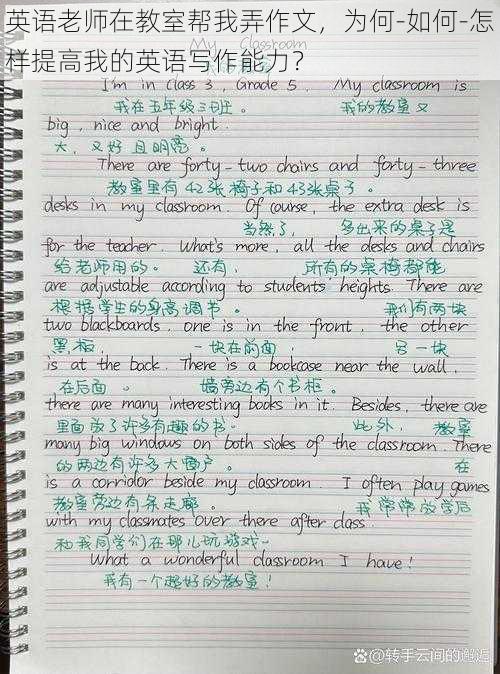 英语老师在教室帮我弄作文，为何-如何-怎
样提高我的英语写作能力？
My Classroom
I'm in Class 3, Grade 5. My classroom is
我在五年级三班。 我的教室又
big, nice and bright.
大，又好且明亮。
There are forty-two chairs and forty-three
教室里有42张椅子和43张桌子。
desks in my classroom. Of course, the extra desk is
当然了， 多出来的桌子是
for the teacher. What's more, all the desks and chairs
给老师用的。 还有， 所有的桌椅都能
are adjustable according to students' heights. There are
根据学生的身高调节。 我们有两块
two blackboards, one is in the front, the other
黑板， 一块在前面， 另一块
is at the back. There is a bookcase near the wall,
在后面。 墙旁边有个书柜。
there are many interesting books in it. Besides, there are
里面放了许多有趣的书。 此外， 教室
many big windows on both sides of the classroom. There
的两边有许多大窗户。 在
is a corridor beside my classroom. I often play games
教室旁边有条走廊。 我常常放学后
with my classmates over there after class.
和我同学们在那儿玩游戏。
What a wonderful classroom I have!
我有一个超好的教室！
@转手云间的邂逅